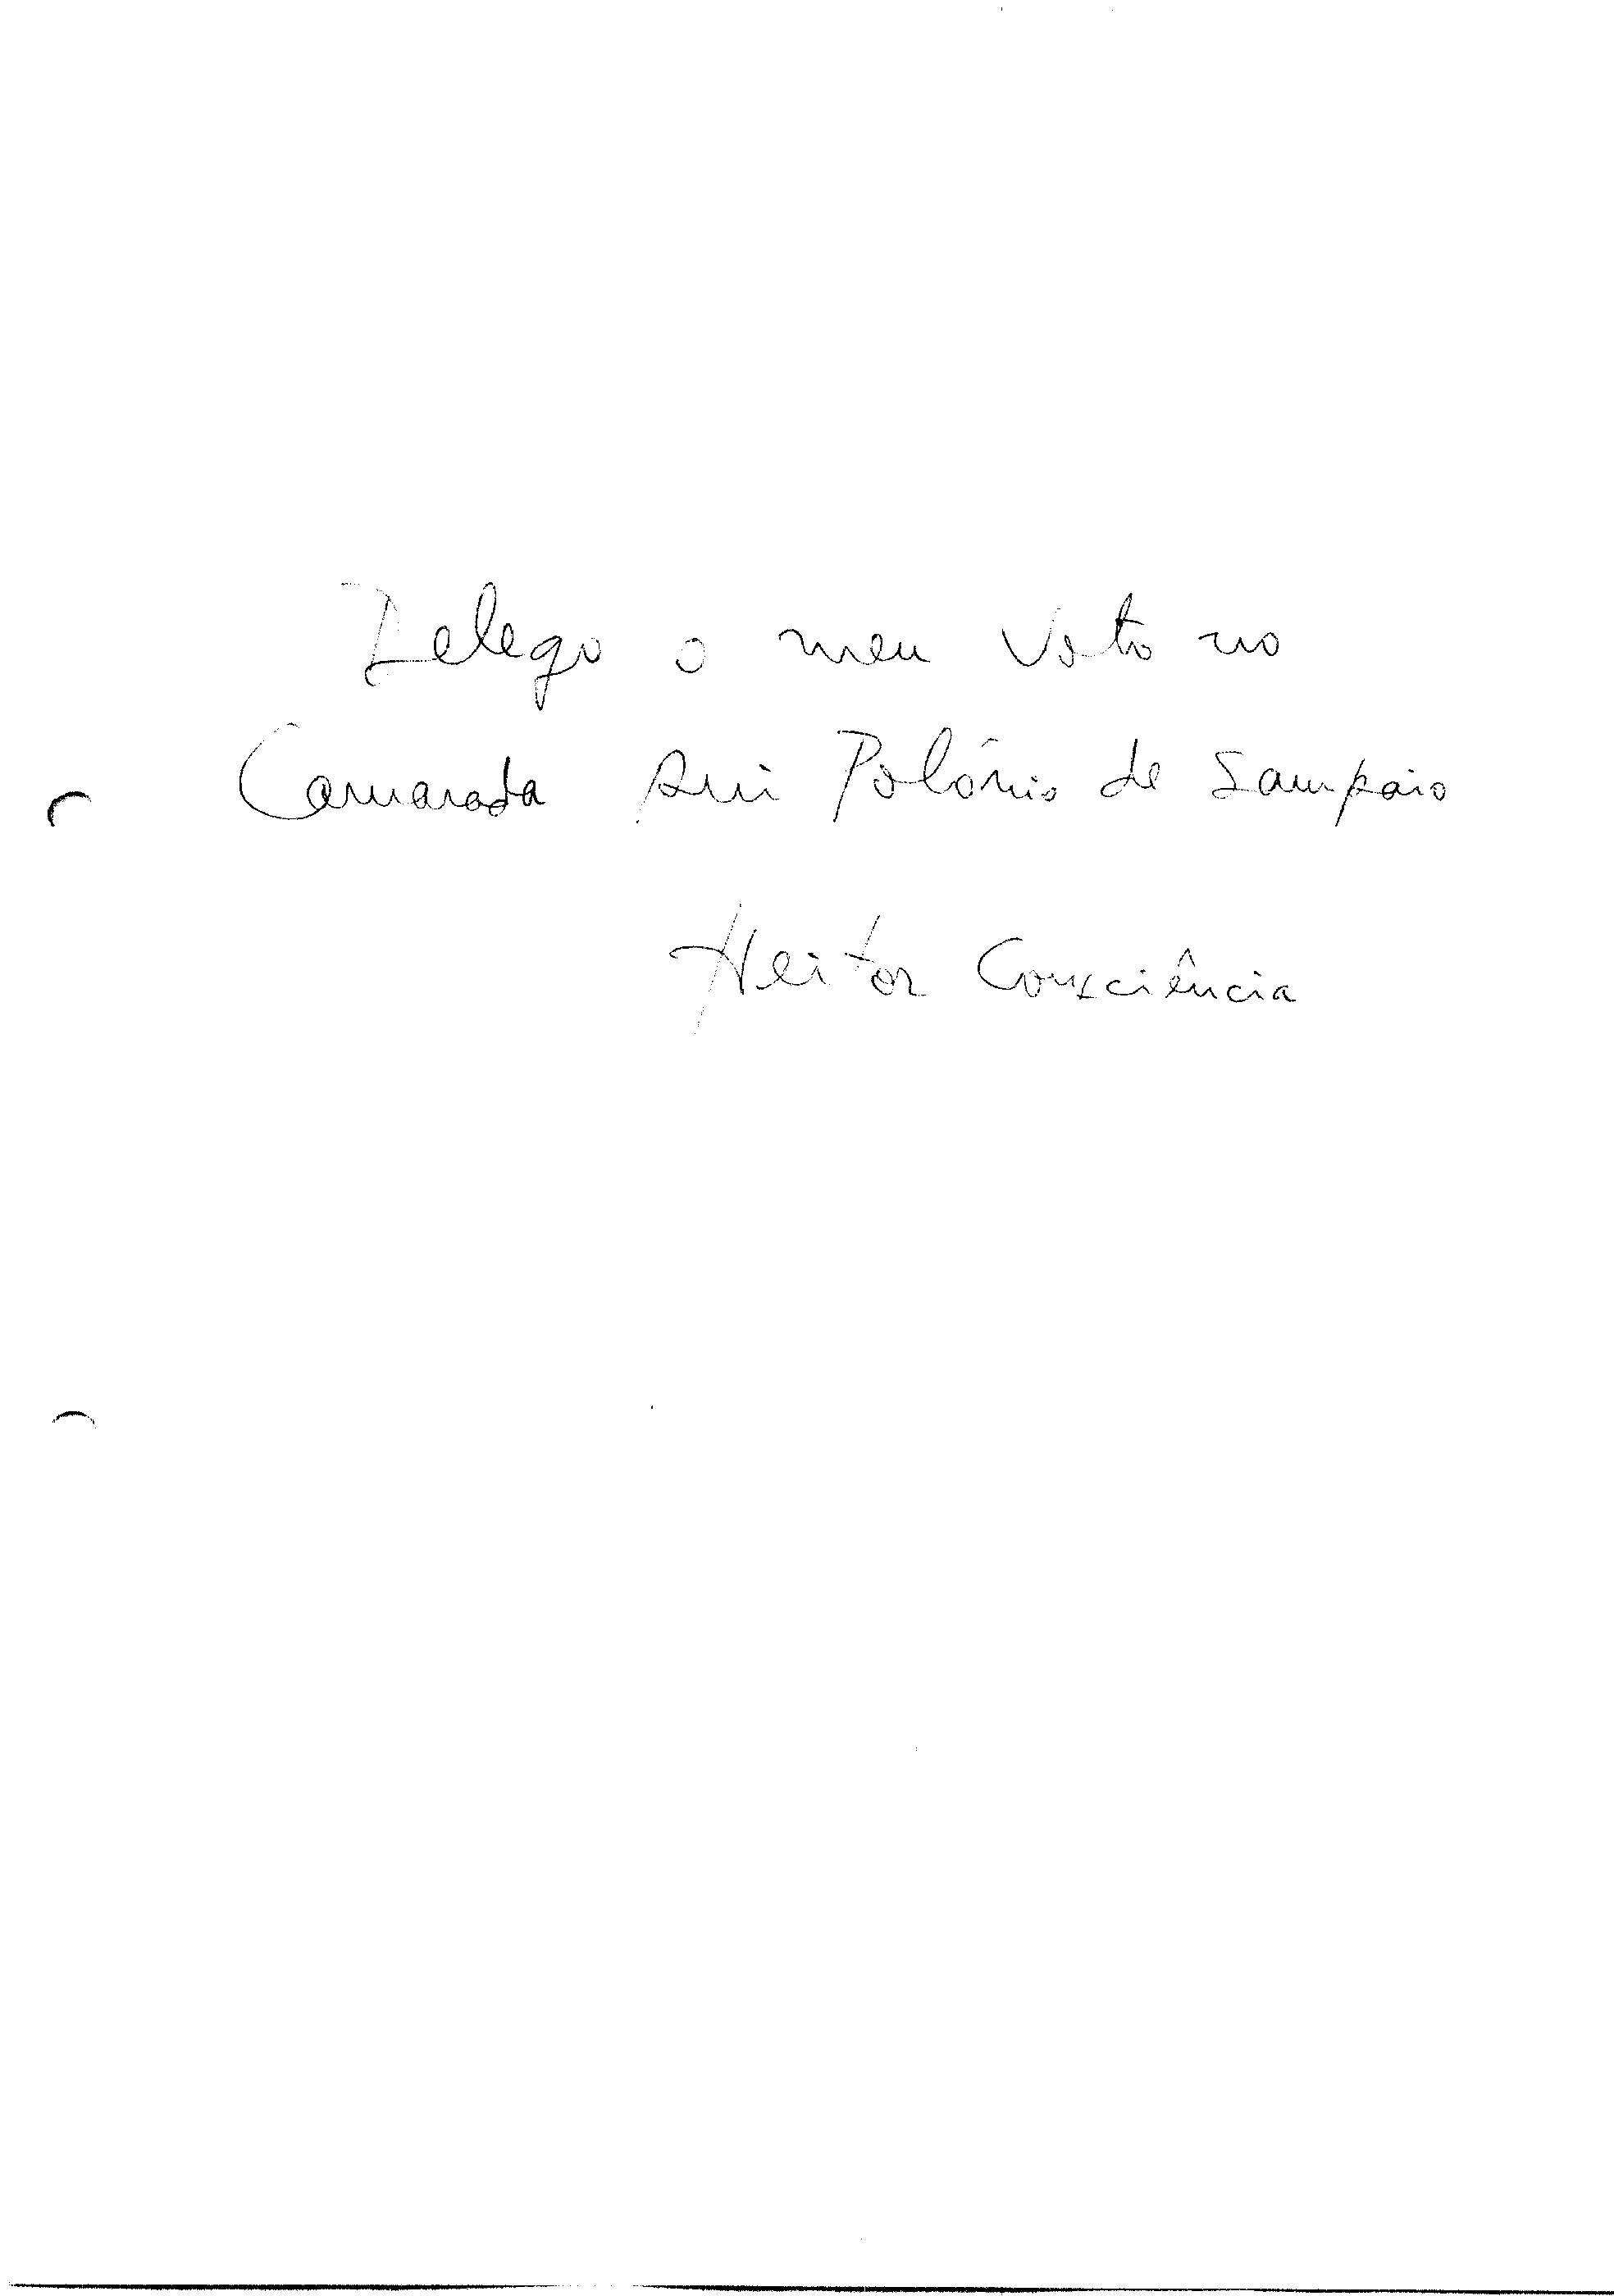 Delego o meu voto no
Camarada Rui Polónio de Sampaio
Heitor Consciência